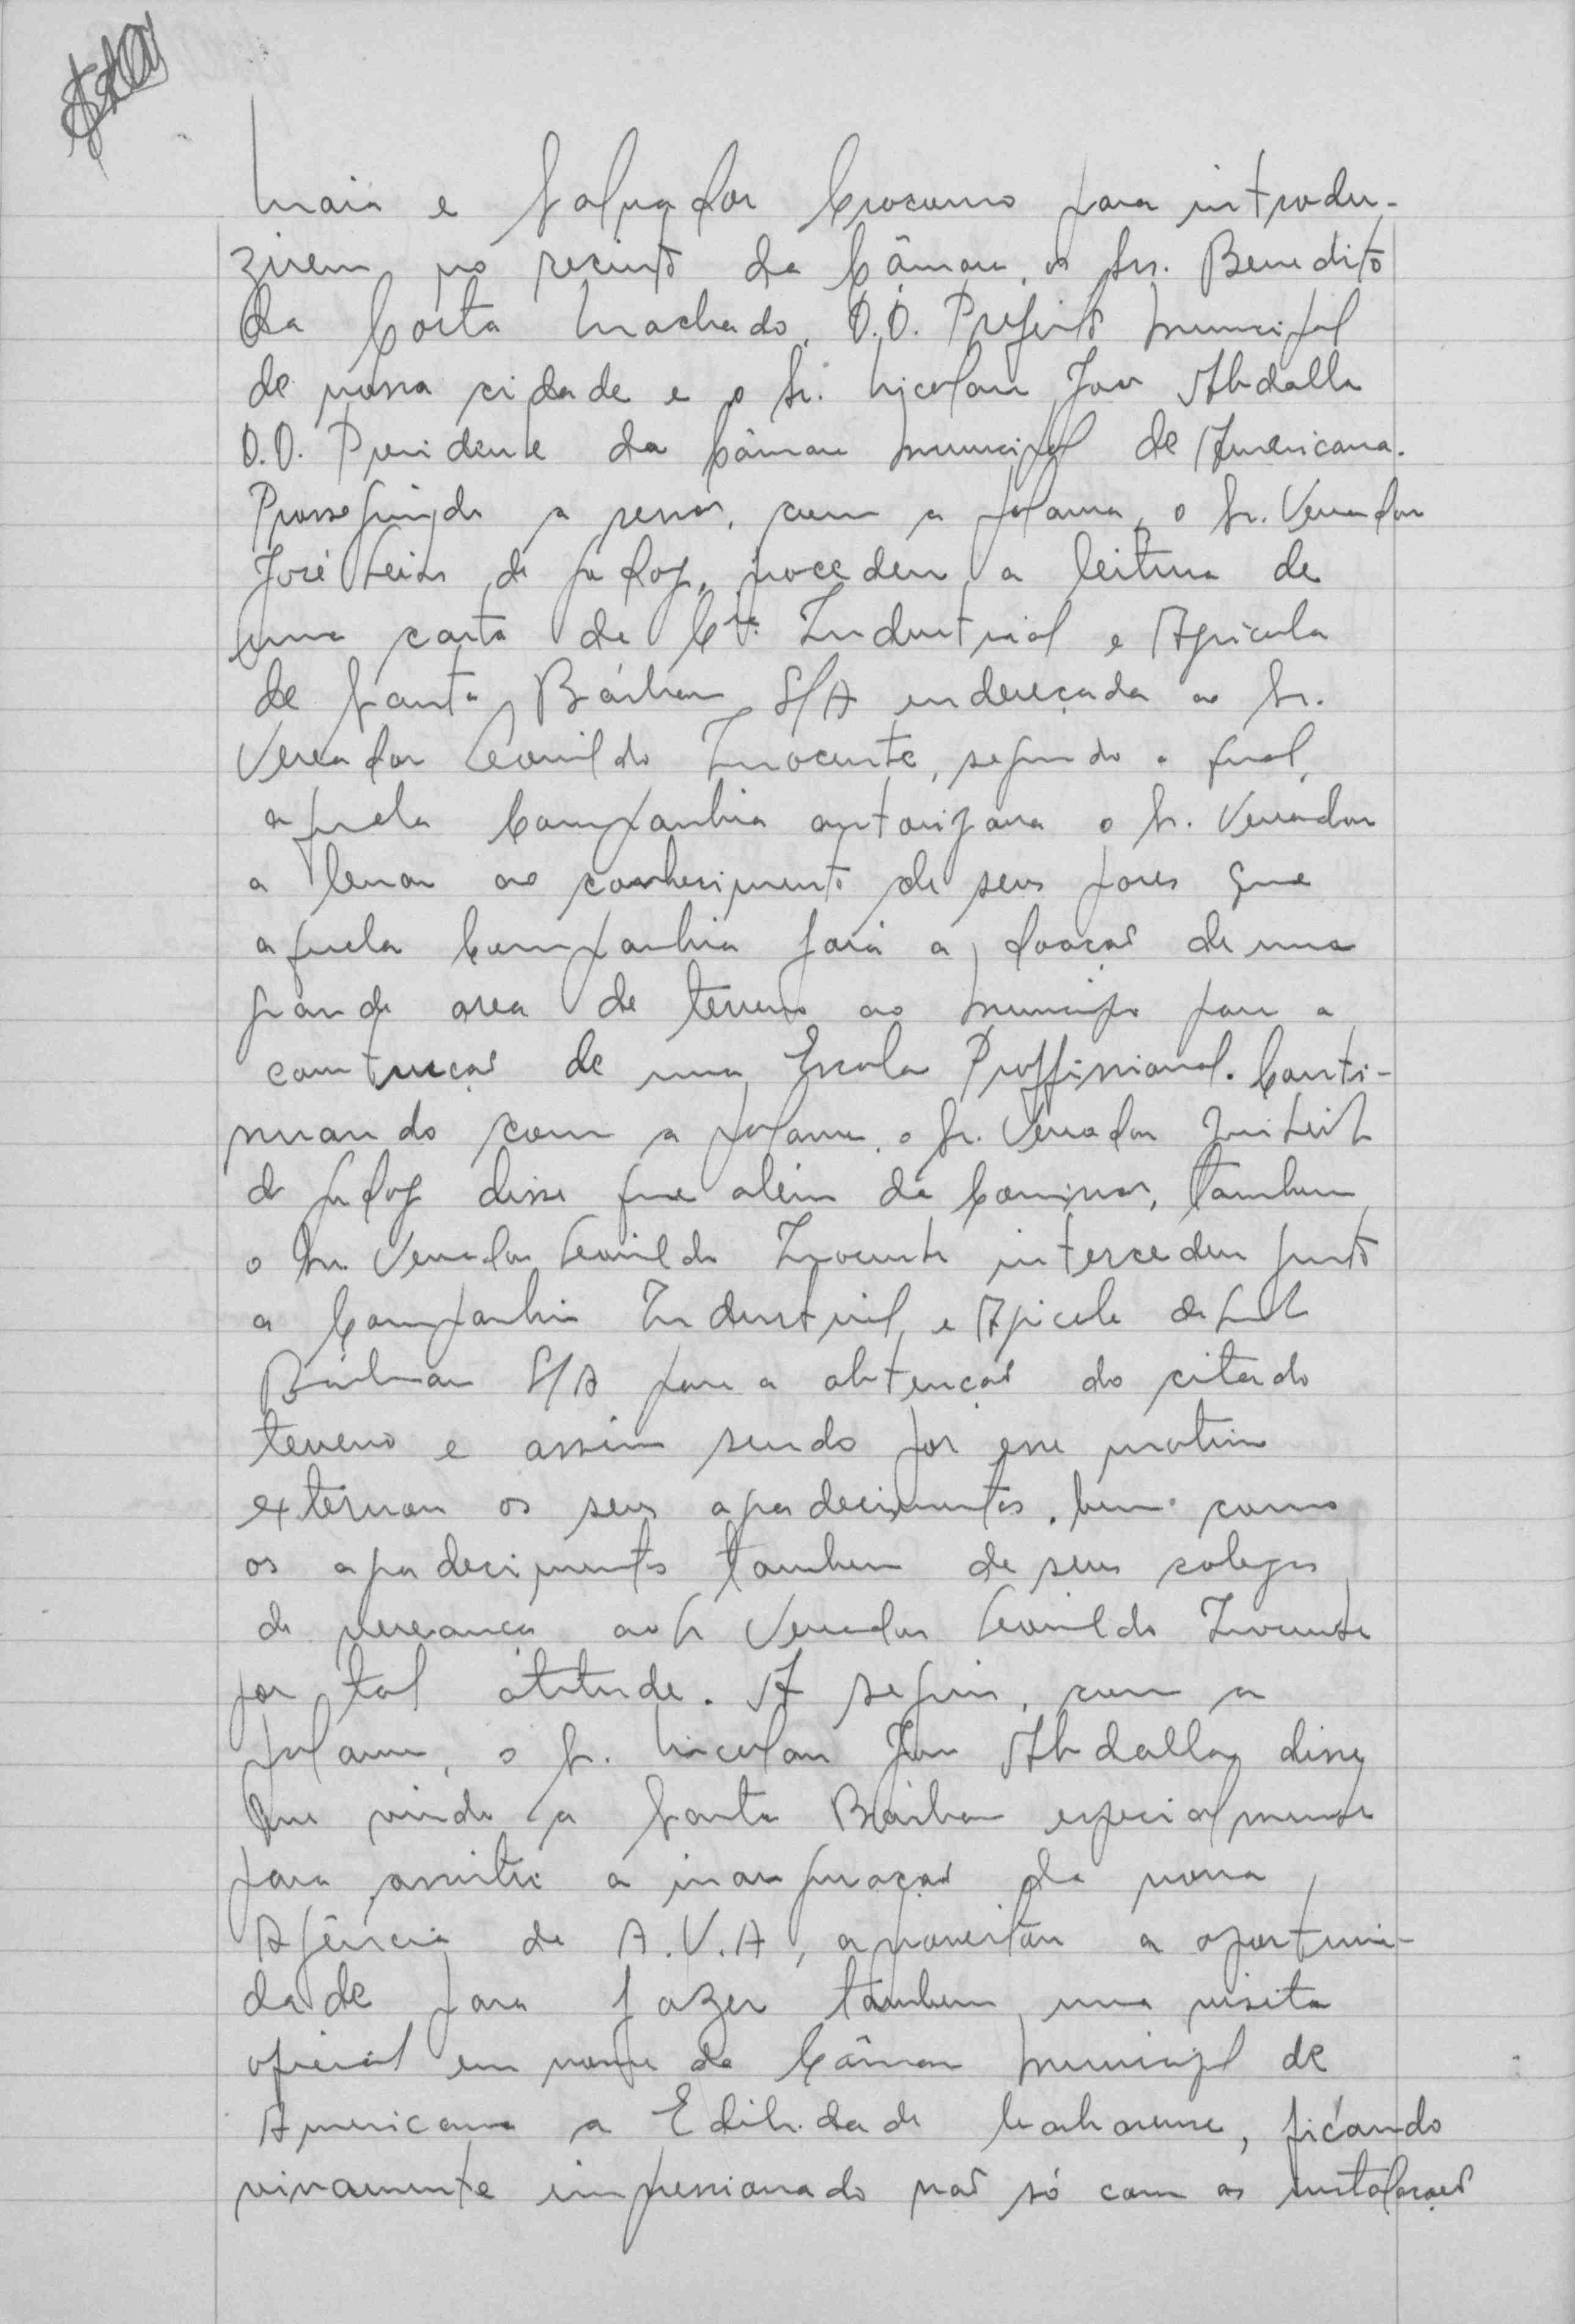 Maia e Salvador Crocomo para introdu-
zirem no recinto da Câmara, os Srs. Benedito
da Costa Machado, D.D. Prefeito Municipal
de nossa cidade e o Sr. Nicolau João Abdalla
D.D. Presidente da Câmara Municipal de Americana.
Prosseguindo a sessão, com a palavra, o Sr. Vereador
José Leite de Godoy, procedeu a leitura de
uma carta da Cia. Industrial e Agrícola
de Santa Bárbara S/A endereçada ao Sr.
Vereador Leonildo Inocente, segundo a qual,
aquela Companhia autorizava o Sr. Vereador
a levar ao conhecimento de seus pares que
aquela Companhia fará a doação de uma
grande area de terreno ao Municipio para a
contrução de uma Escola Proffissional. Conti-
nuando com a palavra, o Sr. Vereador José Leite
de Godoy disse que além da Comissão, tambem
o Sr. Vereador Leonildo Inocente intercedeu junto
a Companhia Industrial e Agricola de Santa
Bárbara S/A para a obtenção do citado
terreno e assim sendo por esse motivo
externou os seus agradecimentos, bem como
os agradecimentos tambem de seus colegas
de vereança ao Sr Vereador Leonildo Inocente
por tal atitude. A seguir, com a
palavra, o Sr. Nicolau João Abdalla, disse
que vindo a Santa Bárbara especialmente
para assistir a inauguração da nova
Agência da A.V.A, aproveitou a oportuni-
dade para fazer tambem uma visita
oficial em nome da Câmara Municipal de
Americana a Edilidade barbarense, ficando
vivamente impressionado não só com as instalações